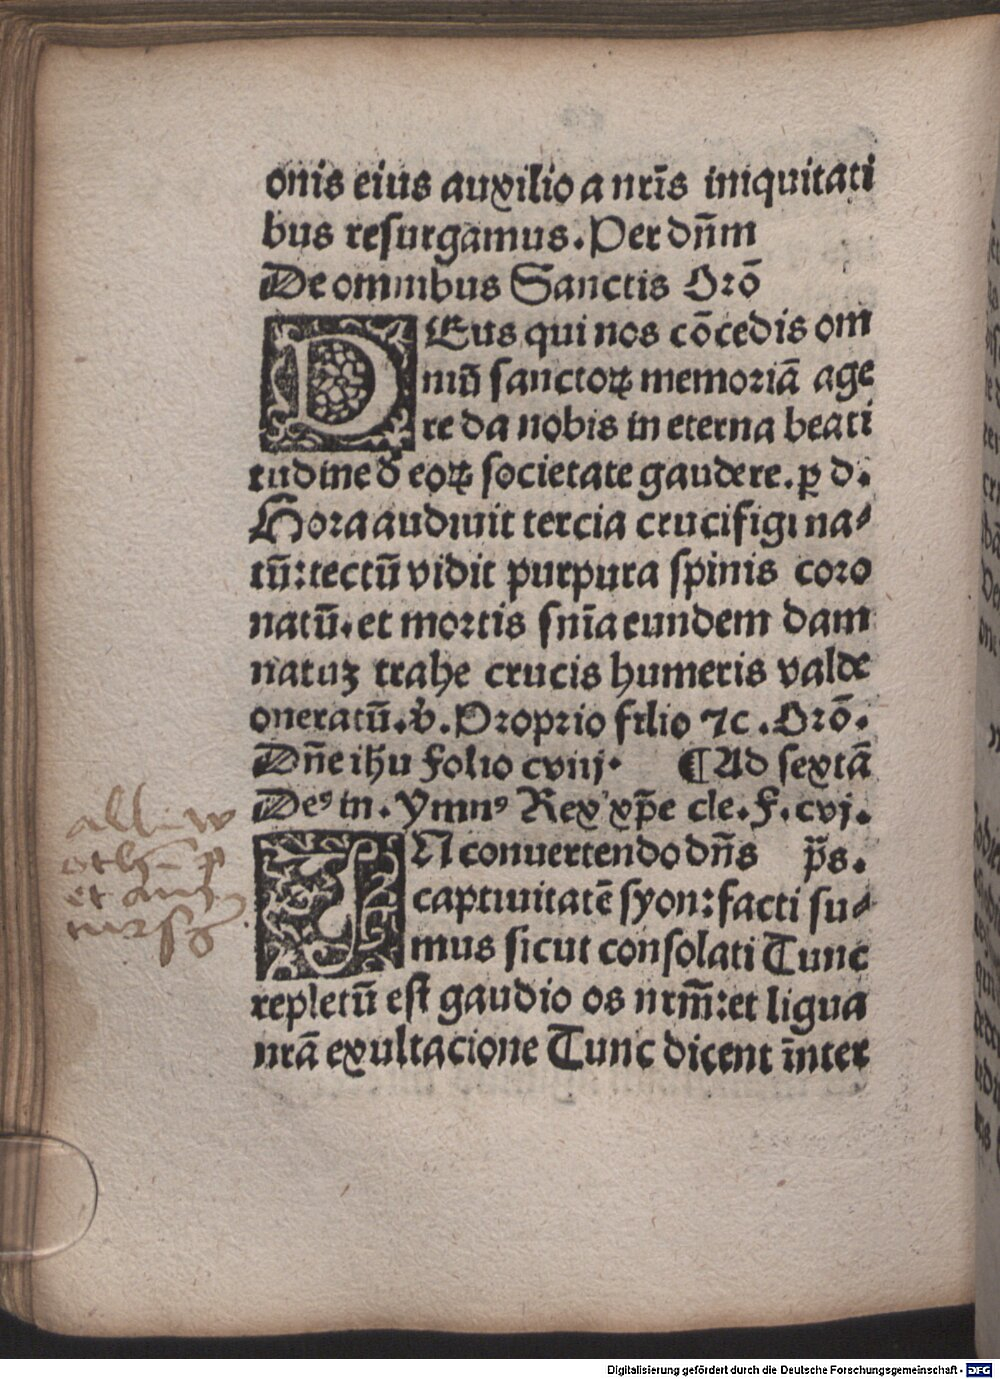 onis eius auxilio a nr̄is iniquitati
bus resurgamus. Per dn̄m
De omnibus Sanctis Orō
DEus qui nos cōcedis om
niū sanctoꝝ memoriā age
re da nobis in eterna beati
tudine d̄ eoꝝ societate gaudere. ꝑ d.
Hora audiuit tercia crucifigi na⸗
tū: tectū vidit purpura spinis coro
natū. et mortis sn̄ia eundem dam
natuȝ trahe crucis humeris valde
oneratū. v̄. Proprio filio ⁊c. Orō.
Dn̄e ih̄u Folio cviij. ¶ Ad sextā
Deꝰ in. Ymnꝰ Rex xp̄e cle. F. cvj.
IN conuertendo dn̄s p̄s.
captiuitatē syon: facti su⸗
mus sicut consolati Tunc
repletū est gaudio os nrm̄: et ligua
nrā exultacione Tunc dicent īnter
Digitalisierung gefördert durch die Deutsche Forschungsgemeinschaft - DFG